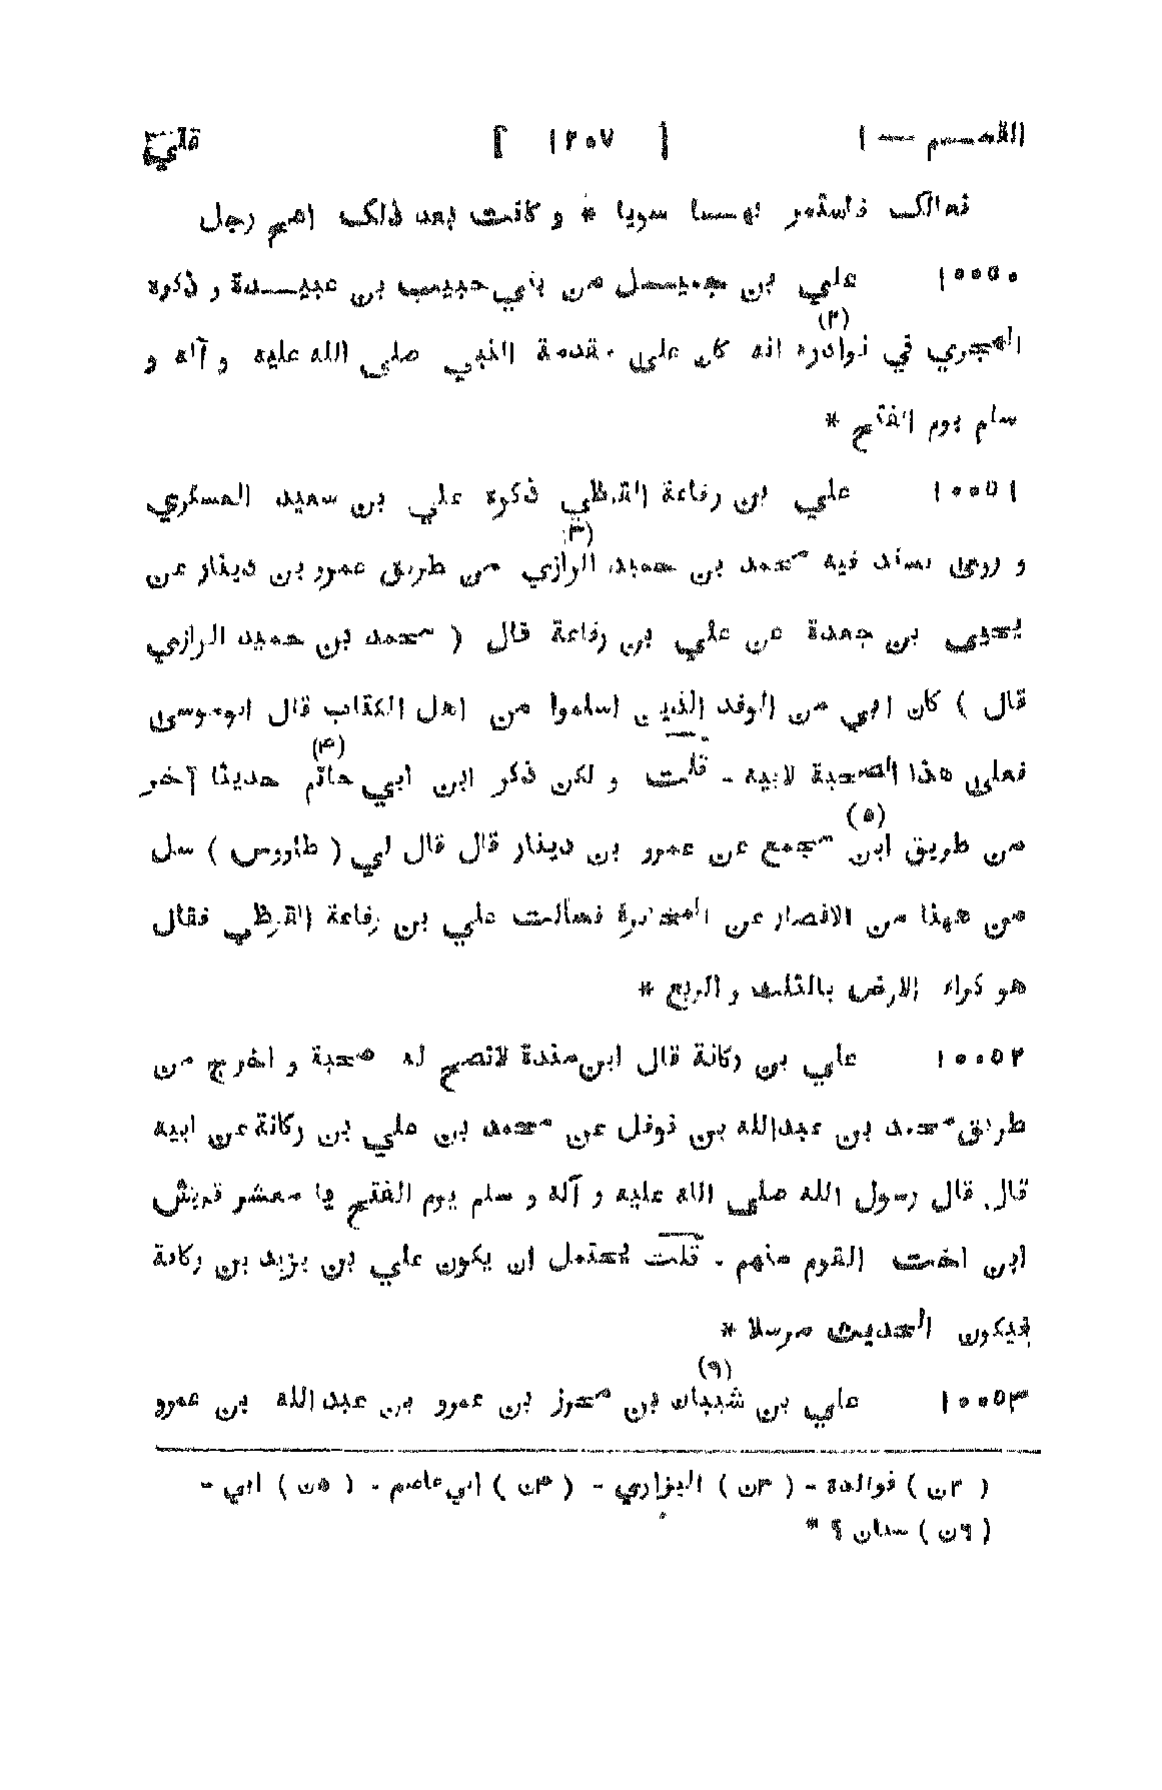 القسم — ١ [ ١٢٠٧ ] علي
فعالك فاستمر بهسا سويا * و كانت بعد ذلك اهيم رجل
١٠٠٥٠ علي بن جميل من بني حبيب بن عبيدة و ذكره
الهجري في نوادره (٢) انه كان على مقدمة النبي صلى الله عليه و آله و
سلم يوم الفتح *
١٠٠٥١ علي بن رفاعة القرظي ذكره علي بن سعيد العسكري
و روى بسند فيه محمد بن حميد الرازي (٣) من طريق عمرو بن دينار عن
يحيى بن جعدة عن علي بن رفاعة قال ( محمد بن حميد الرازي
قال ) كان ابي من الوفد الذين اسلموا من اهل الكتاب قال ابوموسى
فعلى هذا الصحبة لابيه - قلت و لكن ذكر ابن ابي حاتم (٤) حديثا آخر
من طريق ابن (٥) مجمع عن عمرو بن دينار قال قال لي ( طاووس ) سل
من ههنا من الانصار عن المخابرة فسألت علي بن رفاعة القرظي فقال
هو كراء الارض بالثلث و الربع *
١٠٠٥٢ علي بن ركانة قال ابن مندة لاتصح له صحبة و اخرج من
طريق محمد بن عبدالله بن نوفل عن محمد بن علي بن ركانة عن ابيه
قال قال رسول الله صلى الله عليه و آله و سلم يوم الفتح يا معشر قريش
ابن اخت القوم منهم - قلت يحتمل ان يكون علي بن يزيد بن ركانة
فيكون الحديث مرسلا *
١٠٠٥٣ علي بن شيبان (٦) بن محرز بن عمرو بن عبدالله بن عمرو
( ٢ن ) فوائده - ( ٣ن ) البزاري - ( ٤ن ) ابي عاصم - ( ٥ن ) ابي -
( ٦ن ) سنان ؟ *